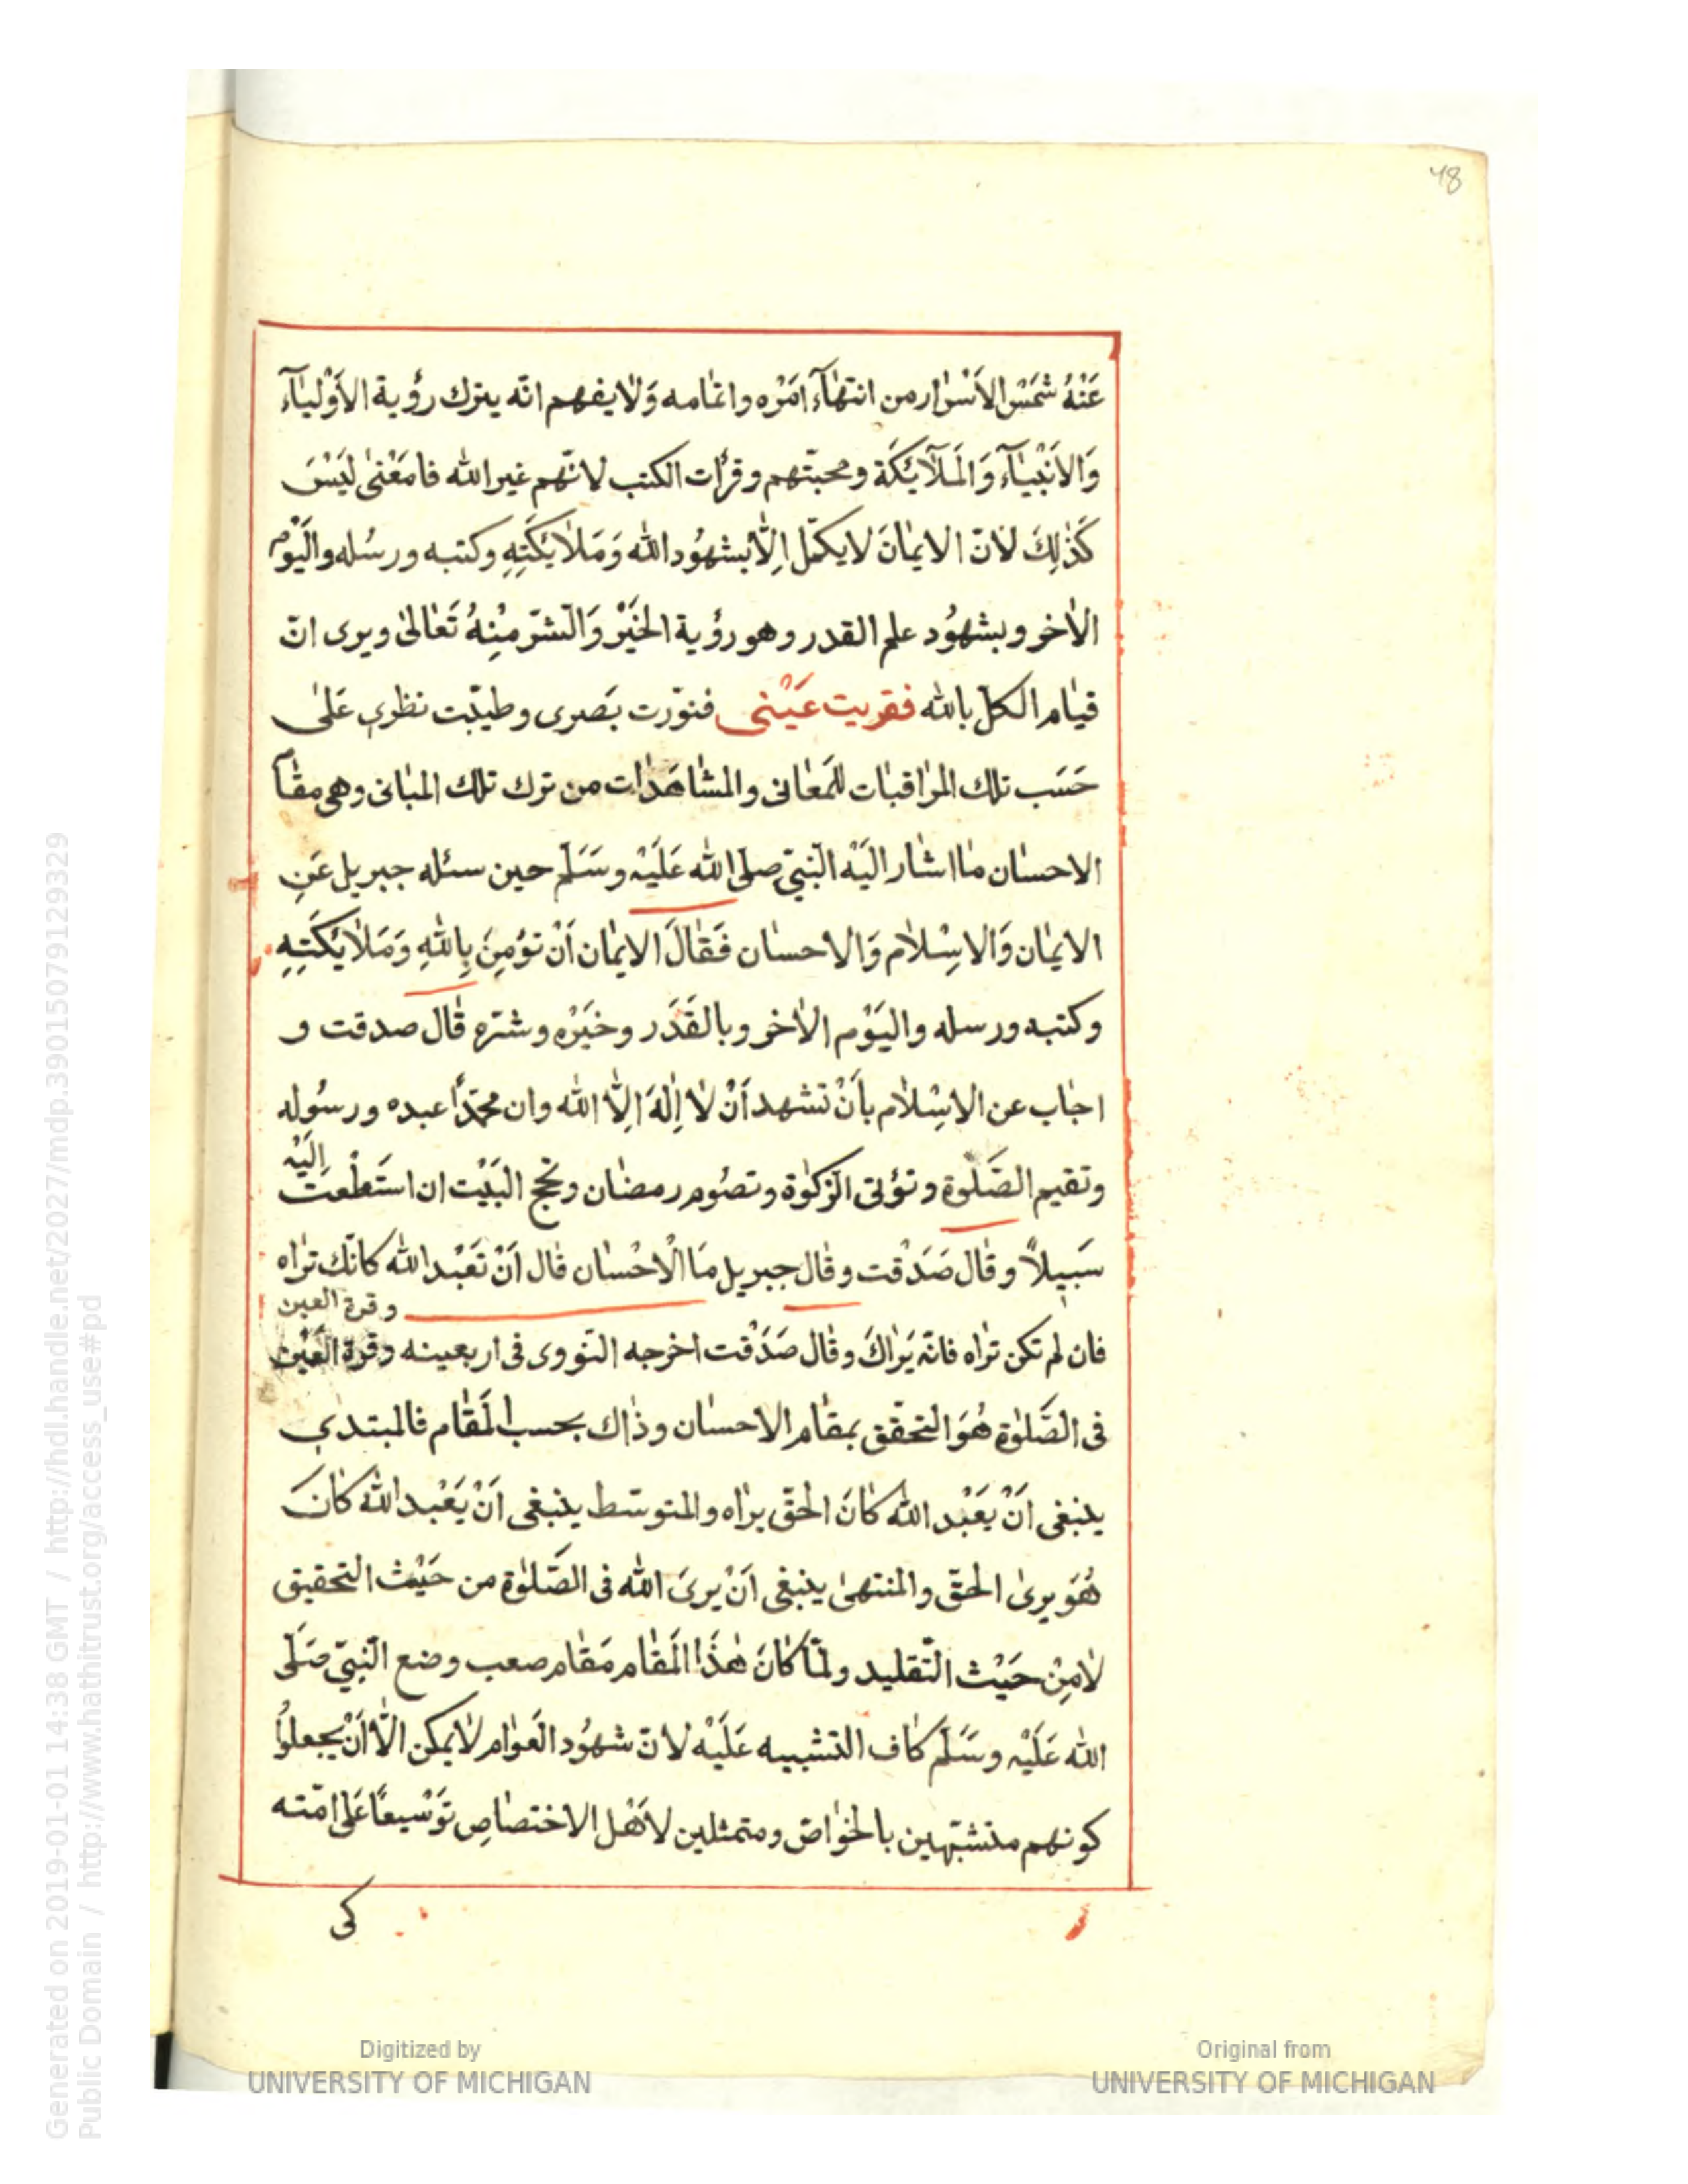 48
عَنْهُ شمَسْ الاَسْرٰار من انتهٰآء امَرْه واتمٰامه وَلٰا يفهم انّه يترك رؤية الاَوْليٰآء
وَالاَنْبْيٰآء وَالمَلٰآئكَة ومحبتّهم وقرٔات الكتب لانّهم غير الله فامَعْنىٰ ليَسْنَ
كَذٰلِكَ لانّ الايمٰانَ لا يكمّل اِلّٰا بشهُود الله وَمَلاٰئكَتِهِ وكتبه ورسُله واليَوْم
الاٰخر وبشهُود علم القدر وهو رؤية الخيَرْ وَالشّر مِنْهُ تَعٰالىٰ ويرى انّ
قيٰام الكلّ بالله فقريت عَيْنى فنوّرت بَصرى وطيبّت نظرى عَلىٰ
حَسَب تلك المرٰاقبٰات للمَعٰانى والمشٰاهَدٰات من ترك تلك المبٰانى وهى مقٰآم
الاحسٰان مٰا اشٰار اليَهْ النّبىّ صلى الله عَلَيْهْ وسَلّم حين سئله جبريل عَنِ
الايمٰان وَالاسِْلاٰم وَالاحسٰان فَقٰالَ الايمٰان اَنْ تؤمِنَ بِاللهِ وَمَلاٰئكَتِهِ
وكتبه ورسله واليَوْم الاٰخر وبالقَدَر وخيَرْه وشرّه قٰال صدقت و
اجٰاب عن الاسِْلاٰم بأنْ تشهد اَنْ لٰا اِلٰهَ اِلّٰا الله وان محمّداً عبده ورسُوله
وتقيم الصَّلوٰة وتؤتى الزّكوٰة وتصُوم رمضٰان وتحج البَيْت ان استَطعْت اليَهْ
سَبيلاً وقٰال صَدَقْت وقٰال جبريل مَا الْاحْسٰان قٰال اَنْ تَعَبْد الله كانّك ترٰاه
وقرة العين
فان لم تكن ترٰاه فانّه يَرٰاكَ وقٰال صَدَقْت اخرجه النّووى فى اربعينه وقرة العَيْن
فى الصَّلوٰة هُوَ التحقّق بمقٰام الاحسٰان وذٰاك بحسب المَقٰام فالمبتدى
ينبغى اَنْ يَعْبد الله كٰانَ الحقّ يرٰاه والمتوسّط ينبغى اَنْ يَعْبد الله كٰانَ
هُوَ يرىٰ الحقّ والمنتهىٰ ينبغى اَنْ يرىَ الله فى الصَّلوٰة من حَيْث التحقيق
لٰا مِنْ حَيْث التّقليد ولمّا كٰانَ هٰذَا المَقٰام مَقٰام صعب وضع النّبىّ صَلّى
الله عَلَيْهْ وسَلّم كٰاف التشبيه عَلَيْه لانّ شهُود العَوٰام لٰا يمكن الّٰا اَنْ يجعلوُا
كونهم متشبّهين بالخوٰاصّ ومتمثلين لاَهْل الاختصٰاصِ تَوْسْيعًا عَلى امّته
كى
Generated on 2019-01-01 14:38 GMT / http://hdl.handle.net/2027/mdp.39015079129329
Public Domain / http://www.hathitrust.org/access_use#pd
Digitized by
UNIVERSITY OF MICHIGAN
Original from
UNIVERSITY OF MICHIGAN